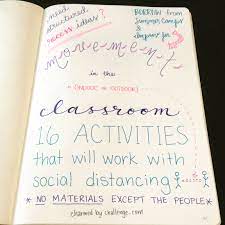 need
structured
RECESS ideas?
BORROW from
Summer Camps
& improv for
movement
in the
(INDOOR or OUTDOOR)
classroom
16 ACTIVITIES
that will work with
social distancing
* NO MATERIALS EXCEPT THE PEOPLE *
charmed by challenge.com